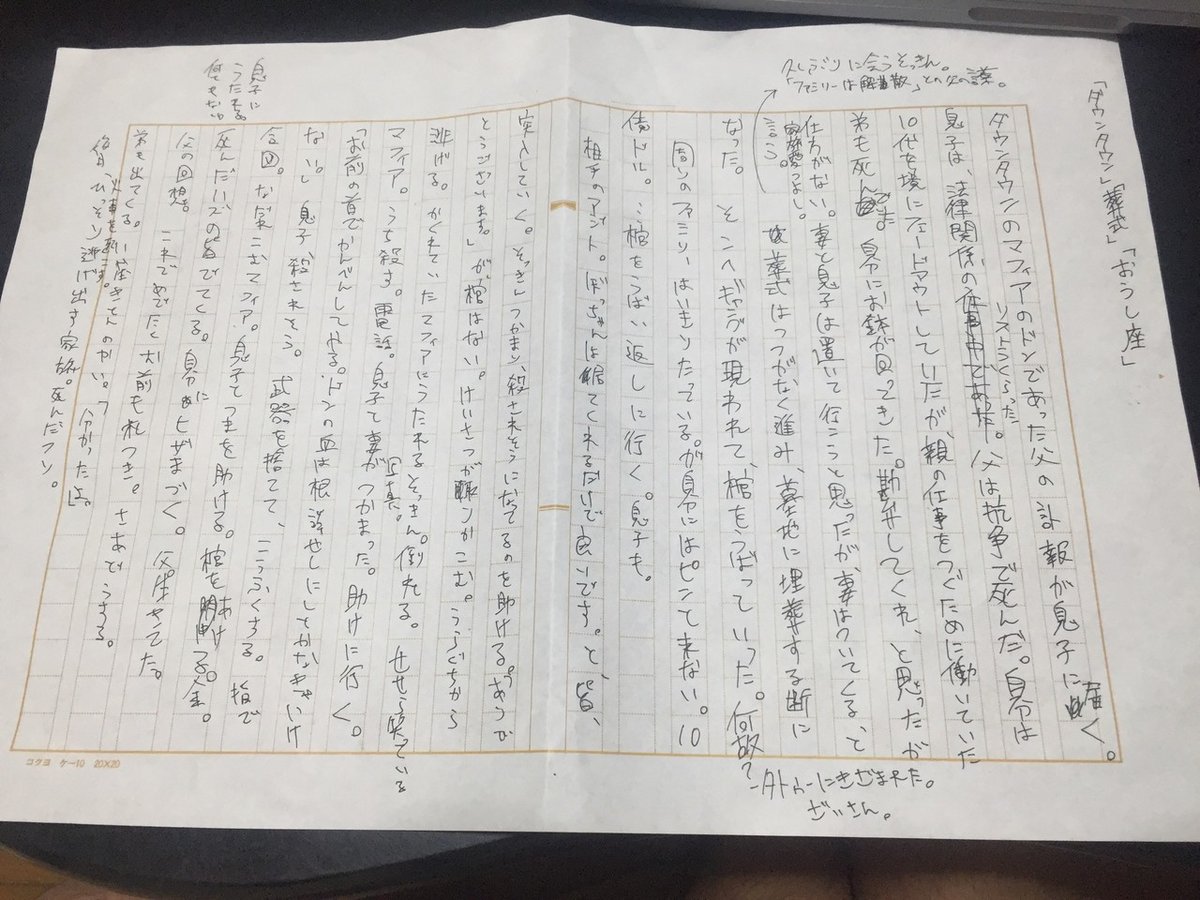 「ダウンタウン」「葬式」「おうし座」
ダウンタウンのマフィアのドンであった父の訃報が息子に届く。
リストラくらった
息子は、法律関係の仕事中であった。父は抗争で死んだ。自分は
10代を境にフェードアウトしていたが、親の仕事をつぐために働いていた
弟も死んでまた自分にお鉢が回ってきた。勘弁してくれ、と思ったが
仕方がない。妻と息子は置いて行こうと思ったが、妻はついてくる、と
言う。家族愛つよし。葬式はつつがなく進み、墓地に埋葬する断に
久しぶりに会うそっきん。
「ファミリーは解散」との父の謎。
なった。そこへギャングが現われて、棺をうばっていった。何故?
タトゥーにきざまれた。
ざいさん。
周りのファミリーはいきりたっている。が自分にはピンと来ない。10
億ドル。…棺をうばい返しに行く。息子も。
相手のアジト。ぼっちゃんは居てくれるだけで良いです。と、皆、
突入していく。そっきんつかまい、殺されそうになってるのを助ける。ありが
とうございます。」が棺はない。けいさつが取りかこむ。うらぐちから
逃げる。かくれていたマフィアにうたれるそっきん。倒れる。せせら笑っている
マフィア。うち殺す。電話。息子と妻がつかまった。助けに行く。
写真。
「お前の首でかんべんしてやる。ドンの血は根絶やしにしとかなきゃいけ
ない。」息子、殺されそう。武器を捨てて、こうふくする。皆で
会図。なだれこむマフィア。息子と妻を助ける。棺をあける。金。
死んだハズの皆でてくる。自分にヒザまづく。父生きてた。
息子に
うたれる
父の回想。これでめでたくお前も札つき。さあどうする。
弟も出てくる。生きてんのかい。「分かったよ。」
後日、ひっそり逃げ出す家族。死んだフリ。
コクヨ ケー10 20×20